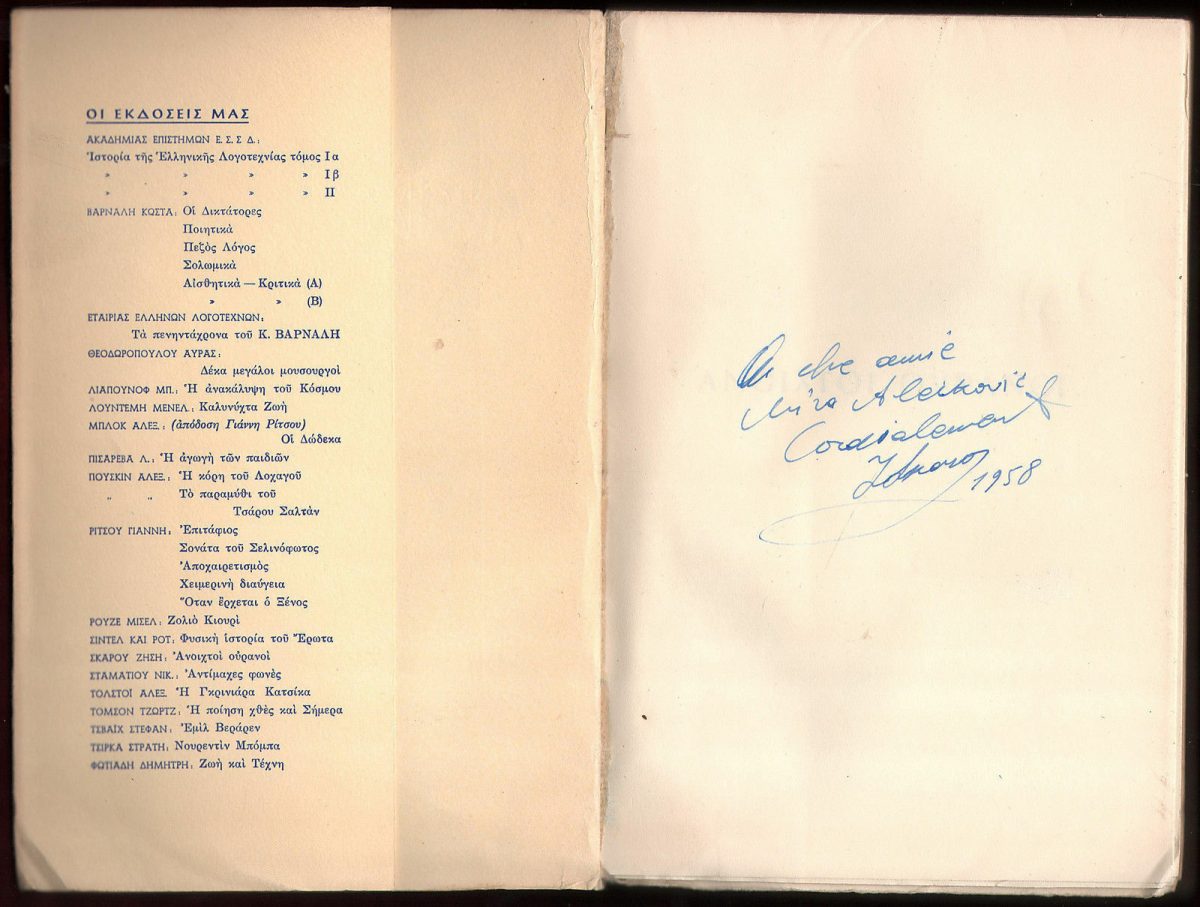 ΟΙ ΕΚΔΟΣΕΙΣ ΜΑΣ
ΑΚΑΔΗΜΙΑΣ ΕΠΙΣΤΗΜΩΝ Ε.Σ.Σ Δ.:
Ἱστορία τῆς Ἑλληνικῆς Λογοτεχνίας τόμος Ια
» » » » Ιβ
» » » » ΙΙ
ΒΑΡΝΑΛΗ ΚΩΣΤΑ: Οἱ Δικτάτορες
Ποιητικὰ
Πεζὸς Λόγος
Σολωμικὰ
Αἰσθητικὰ — Κριτικὰ (Α)
» » (Β)
ΕΤΑΙΡΙΑΣ ΕΛΛΗΝΩΝ ΛΟΓΟΤΕΧΝΩΝ:
Τὰ πενηντάχρονα τοῦ Κ. ΒΑΡΝΑΛΗ
ΘΕΟΔΩΡΟΠΟΥΛΟΥ ΑΥΡΑΣ:
Δέκα μεγάλοι μουσουργοὶ
ΛΙΑΠΟΥΝΟΦ ΜΠ.: Ἡ ἀνακάλυψη τοῦ Κόσμου
ΛΟΥΝΤΕΜΗ ΜΕΝΕΛ.: Καλυνύχτα Ζωὴ
ΜΠΛΟΚ ΑΛΕΞ.: (ἀπόδοση Γιάννη Ρίτσου)
Οἱ Δώδεκα
ΠΙΣΑΡΕΒΑ Λ.: Ἡ ἀγωγὴ τῶν παιδιῶν
ΠΟΥΣΚΙΝ ΑΛΕΞ.: Ἡ κόρη τοῦ Λοχαγοῦ
„ „ Τὸ παραμύθι τοῦ
Τσάρου Σαλτὰν
ΡΙΤΣΟΥ ΓΙΑΝΝΗ: Ἐπιτάφιος
Σονάτα τοῦ Σεληνόφωτος
Ἀποχαιρετισμὸς
Χειμερινὴ διαύγεια
Ὅταν ἔρχεται ὁ Ξένος
ΡΟΥΖΕ ΜΙΣΕΛ: Ζολιὸ Κιουρὶ
ΣΙΝΤΕΛ ΚΑΙ ΡΟΤ: Φυσικὴ ἱστορία τοῦ Ἔρωτα
ΣΚΑΡΟΥ ΖΗΣΗ: Ἀνοιχτοὶ οὐρανοὶ
ΣΤΑΜΑΤΙΟΥ ΝΙΚ.: Ἀντίμαχες φωνὲς
ΤΟΛΣΤΟΪ ΑΛΕΞ. Ἡ Γκρινιάρα Κατσίκα
ΤΟΜΣΟΝ ΤΖΩΡΤΖ: Ἡ ποίηση χθὲς καὶ Σήμερα
ΤΣΒΑΪΧ ΣΤΕΦΑΝ: Ἐμὶλ Βεράρεν
ΤΣΙΡΚΑ ΣΤΡΑΤΗ: Νουρεντὶν Μπόμπα
ΦΩΤΙΑΔΗ ΔΗΜΗΤΡΗ: Ζωὴ καὶ Τέχνη
amie
Mira Alečković
Cordialement
1958